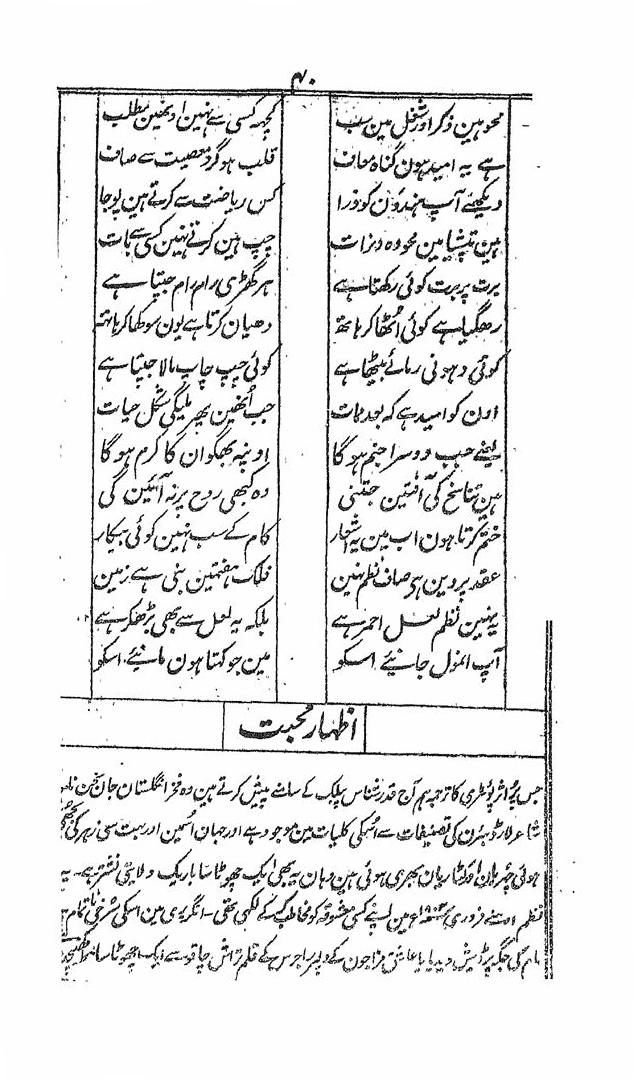 ۴۰
محو ہین ذکر اور شغل مین سب کچھ کسی سے نہین اونھین مطلب
ہے یہ امید ہون گناہ معاف قلب ہو گرد معصیت سے صاف
دیکھئے آپ ہندوٗن کو ذرا کس ریاضت سے کرتے ہین پوجا
ہین تپشیا مین محو دہ دن رات چپ ہین کرتے نہین کسی سے بات
برت پر برت کوئی رکھتا ہے ہر گھڑی رام رام جپتا ہے
رھگیا ہے کوئی اُٹھا کر ہاتھ دھیان کرتا ہے یون سوکھا کر ہاتھ
کوئی دہونی رمائے بیٹھا ہے کوئی چپ چاپ مالا جپتا ہے
اون کو امید ہے کہ بعد ممات جب اُنھین پھر ملیگی شکل حیات
یعنے جب دوسرا جنم ہوگا اونپہ بھگوان کا کرم ہوگا
ہین تناسخ کی آفتین جتنی وہ کبھی روح پر نہ آئین گی
ختم کرتا ہون اب مین یہ اشعار کام کے سب نہین کوئی بیکار
عقد پروین ہی صاف نظم نہین فلک ہفتمین بنی ہے زمین
یہ نہین نظم لعل احمر ہے بلکہ یہ لعل سے بھی بڑھکر ہے
آپ انمول جانیئے اسکو مین جو کہتا ہون مانیئے اسکو
اظہار محبت
جس پُر اثر پوئٹری کا ترجمہ ہم آج قدرشناس پبلک کے سامنے پیش کرتے ہین وہ فخر انگلستان جان سخن
شاعر لارڈ بائرن کی تصنیفات سے اُسکی کلیات مین موجود ہے اور جہان اُسمین اور بہت سی زہر کی
ہوئی چھریان کٹاریان بھری ہوئی ہین وہان یہ بھی ایک چھوٹا سا باریک ولایتی نشتر ہے۔ یہ
نظم اوسنے فروری مین اپنے کسی معشوقہ کو مخاطب کرکے لکھی تھی۔ انگریزی مین اسکی سُرخی
نام کی جگہ پر ڈیش دیدیا یا عاشق مزاجون کے دلپر راجرس کے قلم تراش چاقو سے ایک چھوٹا سا